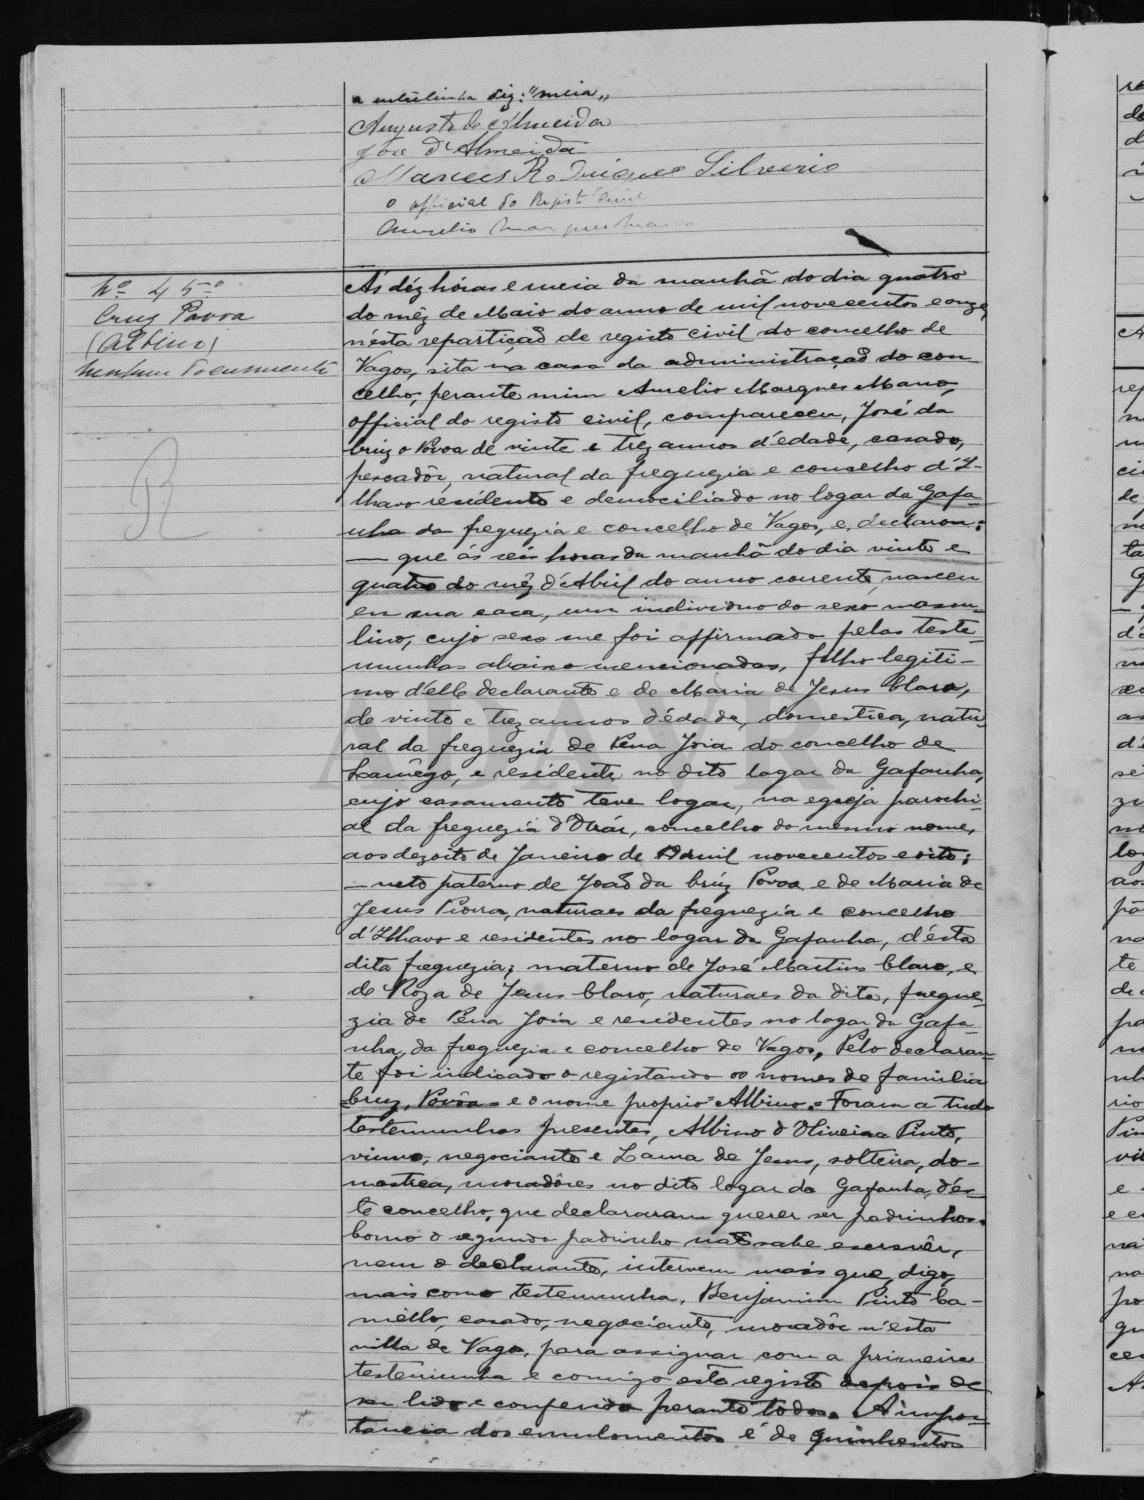 a entrelinha diz: "meia"
Augusto de Almeida
José d'Almeida
Manuel Rodrigues Silverio
o official do Registo Civil
Aurelio Marques Mano
Nº 45º
Cruz Povoa
(Albino)
Nenhum documento
R
Ás déz hóras e meia da manhã do dia quatro
do mêz de Maio do anno de mil novecentos e onze,
n'ésta repartição de registo civil do concelho de
Vagos, sita na casa da administração do con
celho, perante mim Aurelio Marques Mano,
official do registo civil, compareceu, José da
Cruz o Povoa de vinte e trez annos d'édade, casado,
pescadôr, natural da freguezia e concelho d'I-
lhavo residente e demociliado no logar da Gafa-
nha da freguezia e concelho de Vagos, e, declarou:
— que ás seis horas da manhã do dia vinte e
quatro do mêz d'Abril do anno corrente, nasceu
em sua casa, um individuo do sexo mascu-
lino, cujo sexo me foi affirmado pelas teste-
munhas abaixo mencionadas, filho legiti-
mo d'elle declarante e de Maria de Jesus Claro,
de vinte e trez annos d'édade, domestica, natu-
ral da freguezia de Pena Joia do concelho de
Lamêgo, e residente no dito logar da Gafanha,
cujo casamento teve logar, na egreja parochi-
al da freguezia d'Ovár, concelho do mesmo nome,
aos dezoito de Janeiro de mil novecentos e oito;
— neto paterno de João da Crúz Povoa e de Maria de
Jesus Piorra, naturaes da freguezia e concelho
d'Ilhavo e residentes no logar da Gafanha, d'ésta
dita freguezia; materno de José Martins Claro, e
de Roza de Jesus Claro, naturaes da dita, fregue-
zia de Pena Joia e residentes no logar da Gafa-
nha, da freguezia e concelho de Vagos. Pelo declaran-
te foi indicado o registando os nomes de familia
Cruz, Povôa e o nome proprio "Albino". Foram a tudo
testemunhas presentes, Albino d'Oliveira Pinto,
viuvo, negociante e Laura de Jesus, solteira, do-
mestica, moradôres no dito logar da Gafanha, dés-
te concelho, que declararam querer ser padrinhos.
Como o segundo padrinho não sabe escrevêr,
nem o declarante, intervem mais que, digo,
mais como testemunha, Benjamim Pinto Ca-
méllo, casado, negociante, moradôr n'ésta
villa de Vagos, para assignar com a primeira
testemunha e comigo este registo depois de
ser lido e conferido perante todos. A impor-
tancia dos emulomentos é de quinhentos
ADAVR